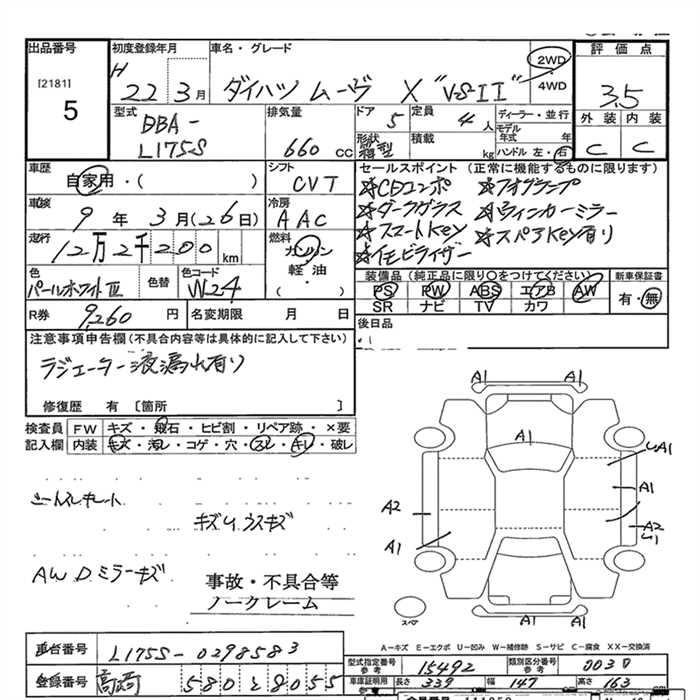 出品番号 初度登録年月 車名・グレード 評価点
[2181]
5
H 22 3月 ダイハツ ムーヴ X "VSII" 2WD 4WD 3.5
型式 DBA-L175S
排気量 660 CC
ドア 5 定員 4人
形状 箱型 積載 kg
ディーラー・並行
モデル年式 年
ハンドル 左・右
外装 内装
C C
車歴 自家用・( )
シフト CVT
車検 9年 3月(26日)
冷房 AAC
走行 12万2千200km
燃料 ガソリン 軽・油 ( )
色 パールホワイトIII 色替 色コード W24
R券 9,260円 名変期限 月 日
セールスポイント (正常に機能するものに限ります)
☆CDコンポ ☆フォグランプ
☆ダークガラス ☆ウィンカーミラー
☆スマートKey ☆スペアKey有り
☆イモビライザー
装備品(純正品に限り○をつけてください) 新車保証書
PS PW ABS エアB AW 有・無
SR ナビ TV カワ
後日品
注意事項申告欄(不具合内容等は具体的に記入して下さい)
ラジエーター液漏れ有り
修復歴 有 〔箇所 〕
検査員記入欄 FW キズ・飛石・ヒビ割・リペア跡・×要
内装 キズ・汚レ・コゲ・穴・スレ・キレ・破レ
キズUウスキズ
AW D.ミラーキズ
事故・不具合等
ノークレーム
A1 A1
A1
UA1
A1
A2
A2
A1
スペア
A1 A1
A−キズ E−エクボ U−凹み W−補修跡 S−サビ C−腐食 XX−交換済
車台番号 L175S-0298583
登録番号 高崎 580 る 8055
型式指定番号 参考 15492 類別区分番号 参考 0030
車庫証明用 参考 長さ 339 幅 147 高さ 163